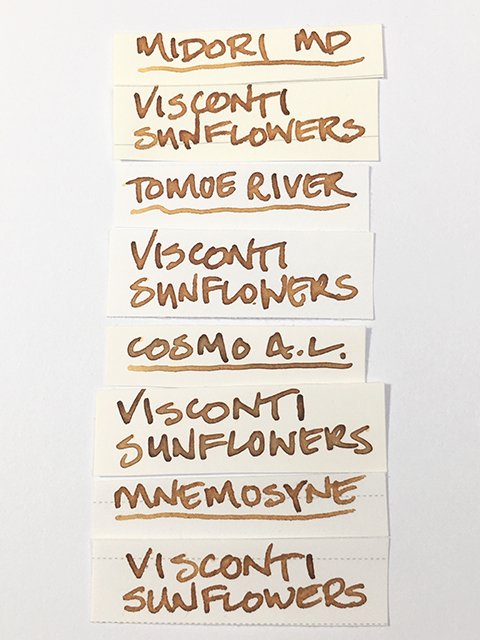 MIDORI MD
VISCONTI
SUNFLOWERS
TOMOE RIVER
VISCONTI
SUNFLOWERS
COSMO A.L.
VISCONTI
SUNFLOWERS
MNEMOSYNE
VISCONTI
SUNFLOWERS